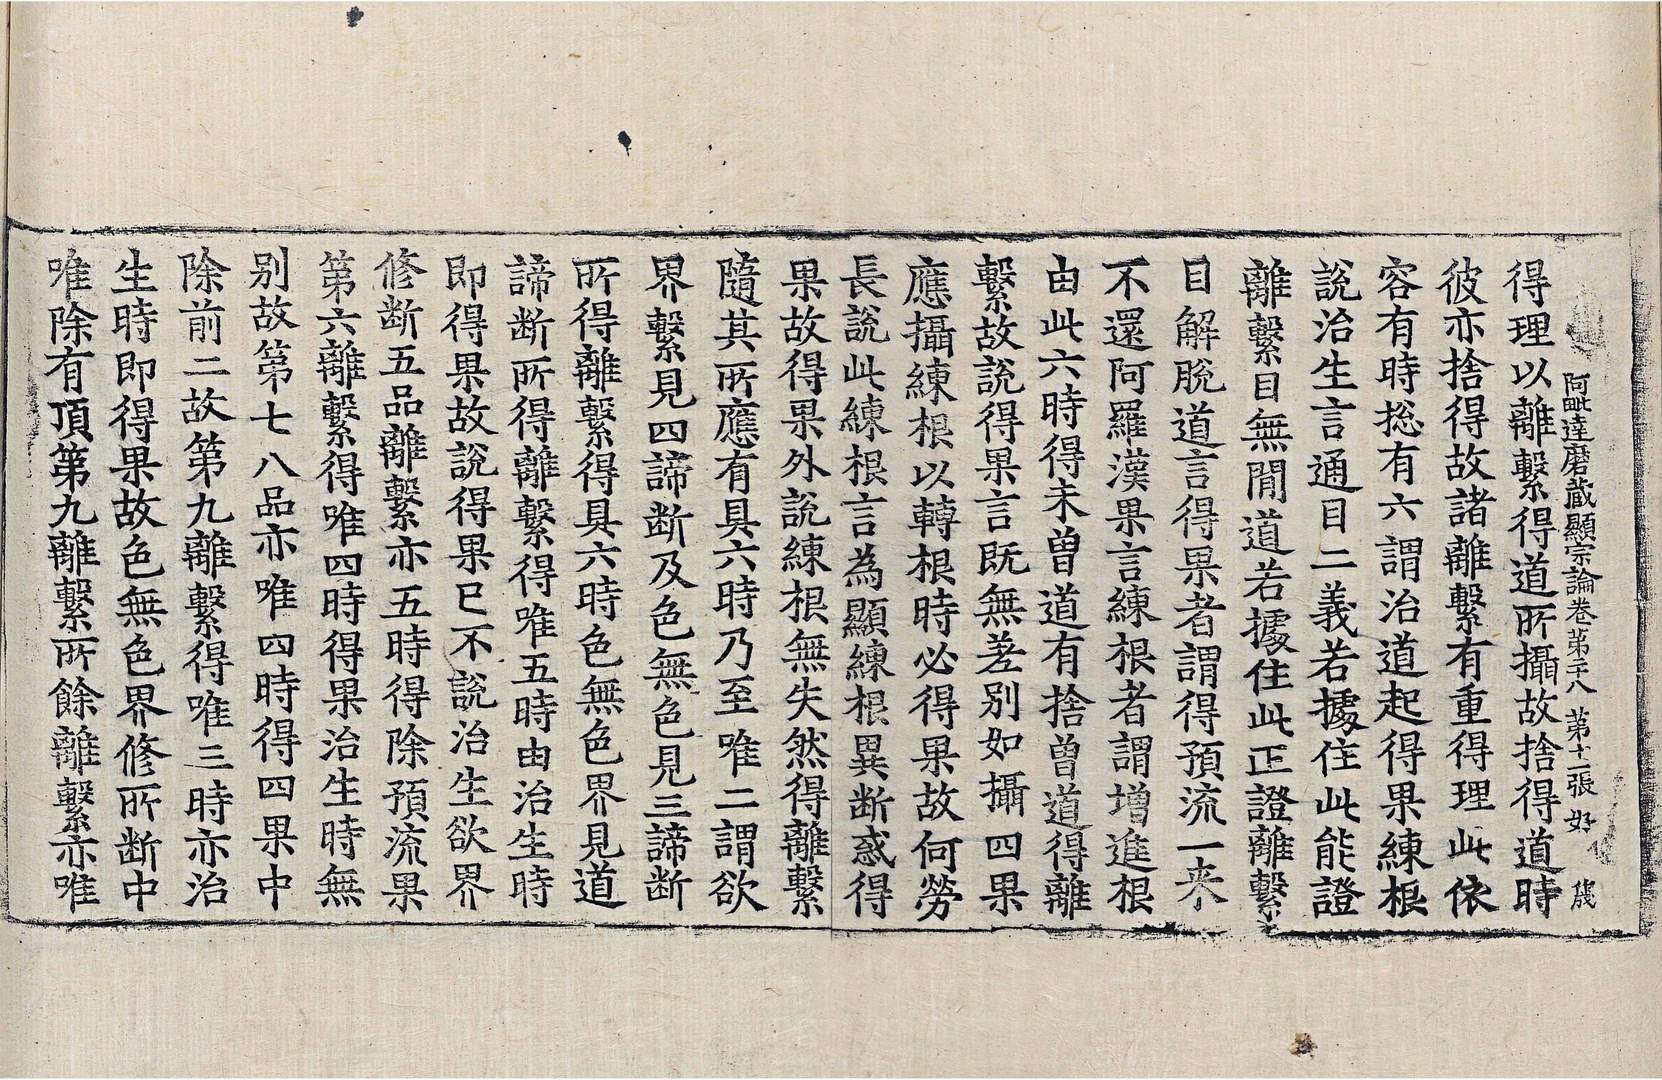 阿毗達磨藏顯宗論卷第二十八 第十二張 好
得理以離繫得道所攝故捨得道時
彼亦捨得故諸離繫有重得理此依
容有時揔有六謂治道起得果練根
說治生言通目二義若據住此能證
離繫目無間道若據住此正證離繫
目解脫道言得果者謂得預流一来
不還阿羅漢果言練根者謂增進根
由此六時得未曾道有捨曾道得離
繫故說得果言旣無差別如攝四果
應攝練根以轉根時必得果故何勞
長說此練根言為顯練根異断惑得
果故得果外說練根無失然得離繫
隨其所應有具六時乃至唯二謂欲
界繫見四諦断及色無色見三諦断
所得離繫得具六時色無色界見道
諦断所得離繫得唯五時由治生時
即得果故說得果已不說治生欲界
修断五品離繫亦五時得除預流果
第六離繫得唯四時得果治生時無
別故第七八品亦唯四時得四果中
除前二故第九離繫得唯三時亦治
生時即得果故色無色界修所断中
唯除有頂第九離繫所餘離繫亦唯